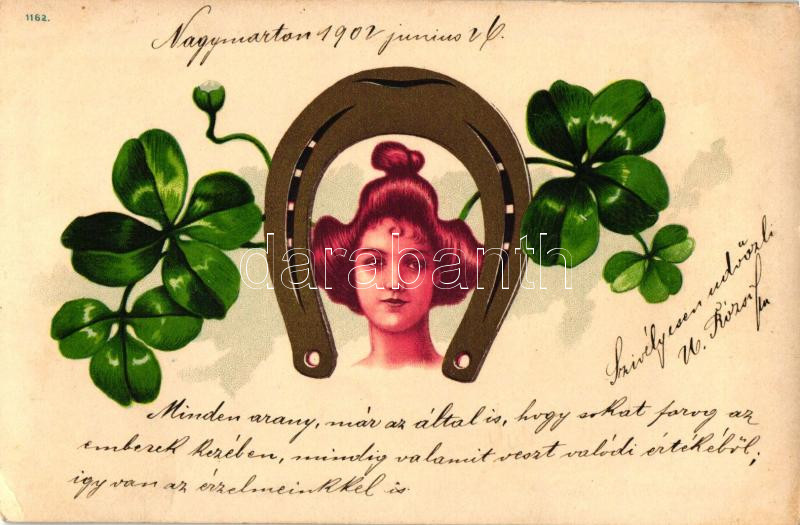 1162.
Nagymarton 1902 junius 26.
darabanth
Szivélyesen üdvözli
Minden arany, már az által is, hogy sokat forog az
emberek kezében, mindig valamit veszt valódi értékéből;
igy van az érzelmeinkkel is